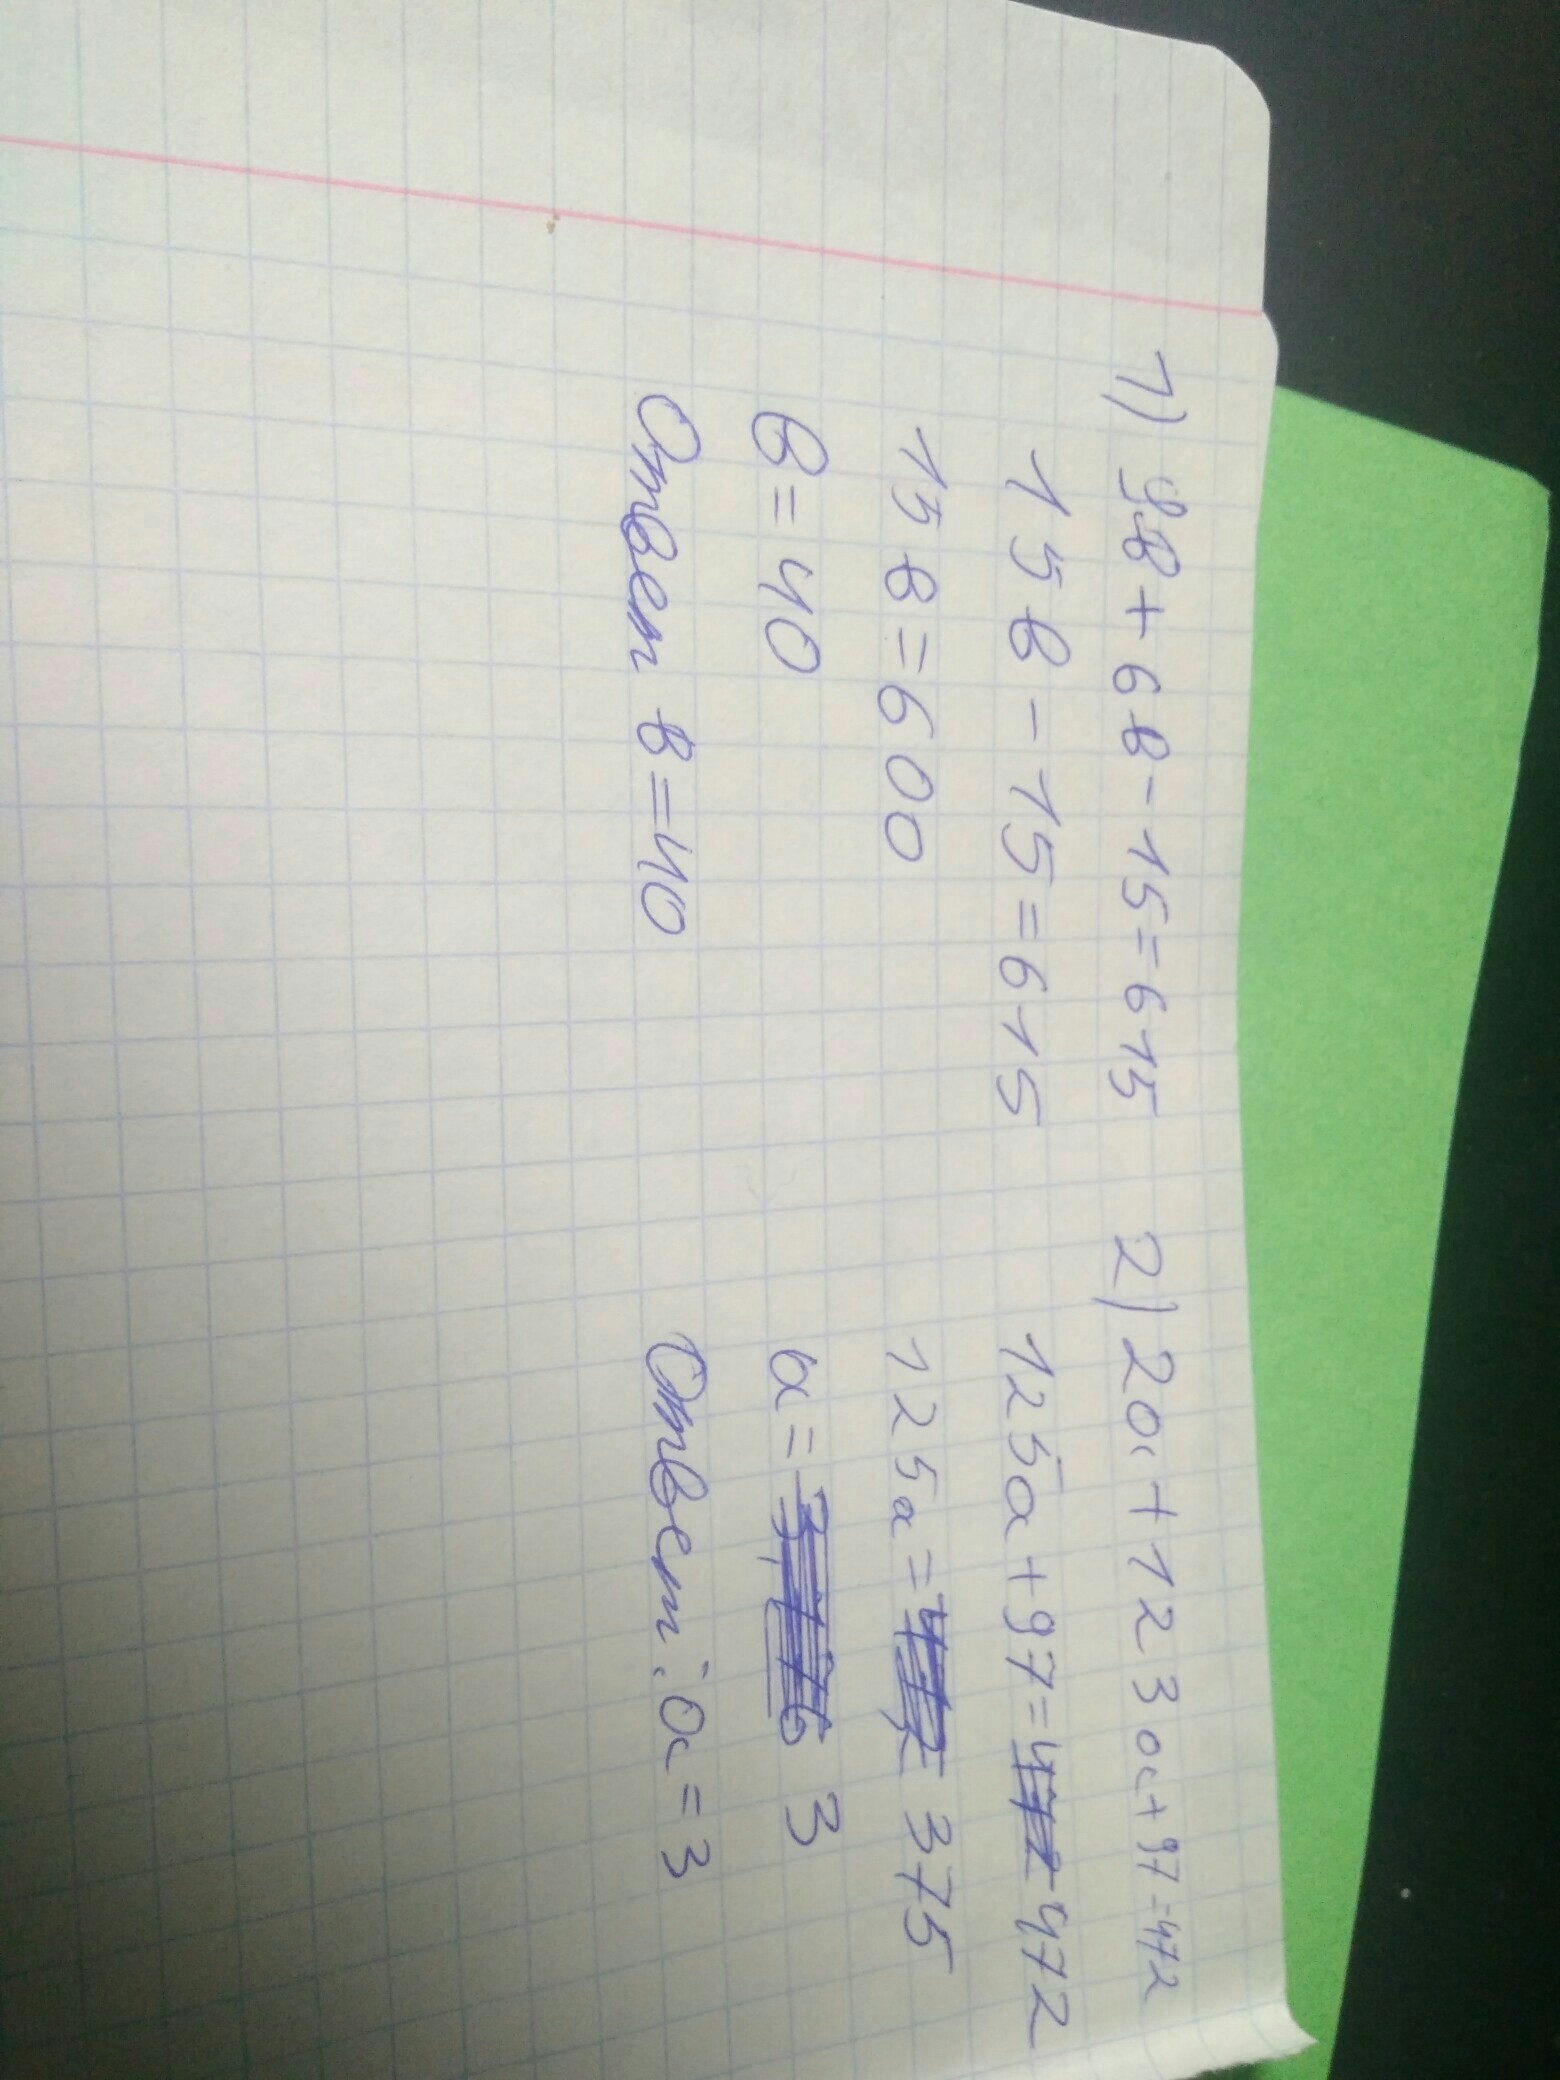 1) 9в+6в-15=615
15в-15=615
15в=600
в=40
Ответ в=40
2) 2а+123а+97=472
125а+97=472
125а=375
а=3
Ответ: а=3